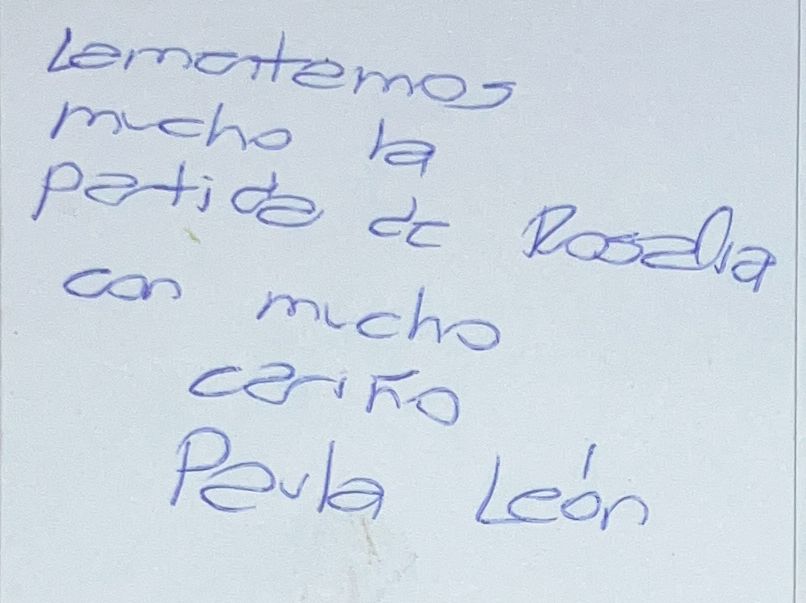 Lemottemos
mucho la
partida de Rosalia
con mucho
cariño
Paula León